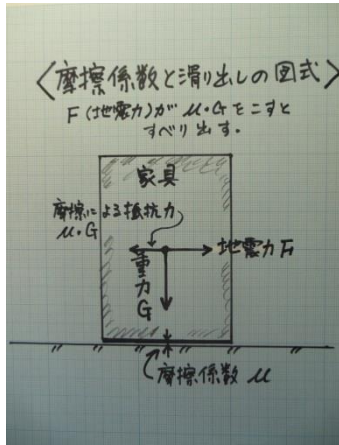 〈摩擦係数と滑り出しの図式〉
F(地震力)がμ・Gをこすと
すべり出す。
家具
摩擦による抵抗力
μ・G
地震力 F
重力G
摩擦係数 μ